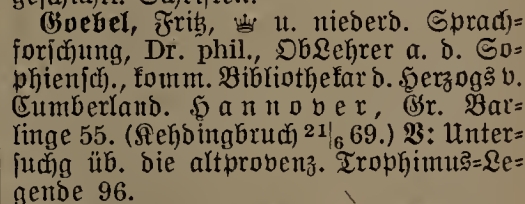 Goebel, Fritz, u. niederd. Sprach=
forschung, Dr. phil., ObLehrer a. d. So=
phiensch., komm. Bibliothekar d. Herzogs v.
Cumberland. Hannover, Gr. Bar=
linge 55. (Kehdingbruch 21/6 69.) V: Unter=
suchg üb. die altprovenz. Trophimus=Le=
gende 96.